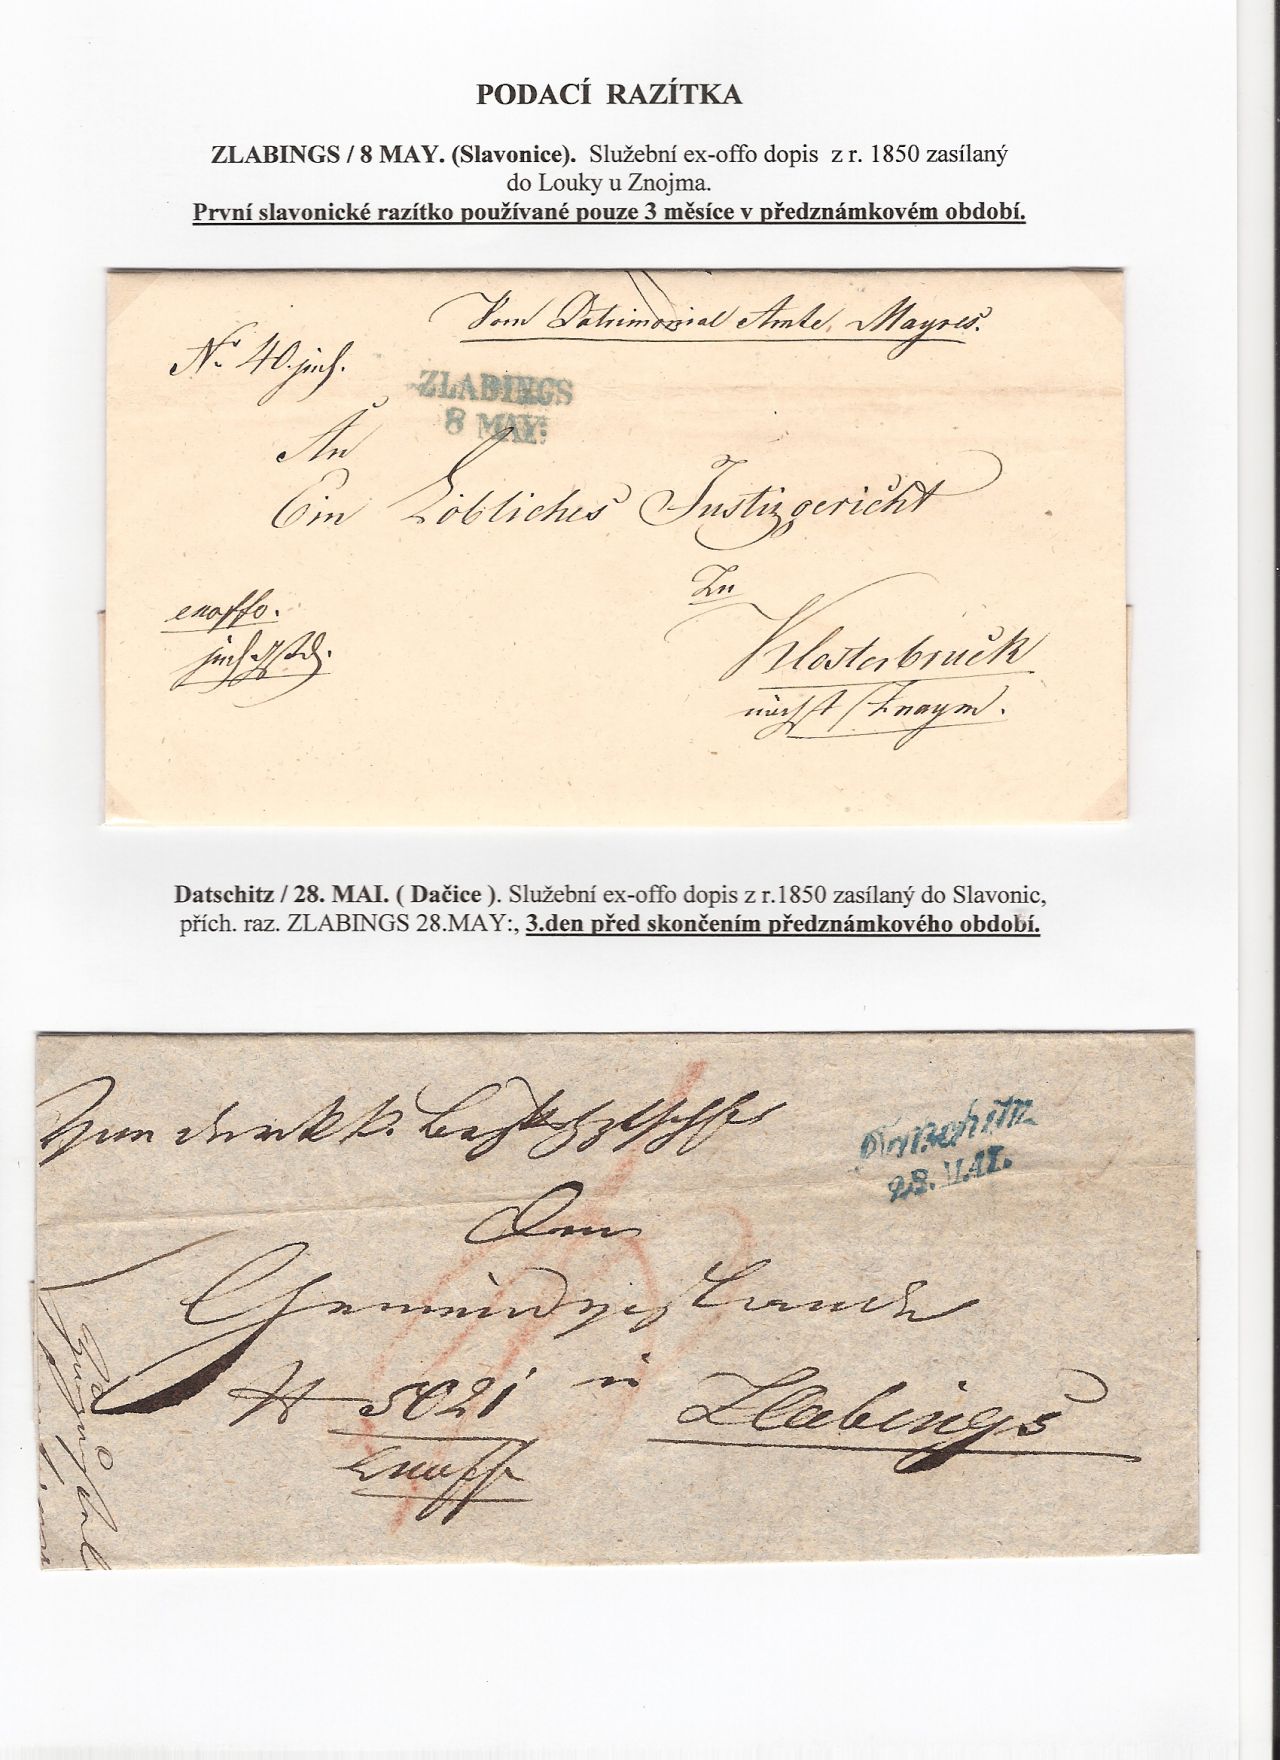 PODACÍ RAZÍTKA
ZLABINGS / 8 MAY. (Slavonice). Služební ex-offo dopis z r. 1850 zasílaný
do Louky u Znojma.
První slavonické razítko používané pouze 3 měsíce v předznámkovém období.
Vom Patrimonial Amte Mayres.
No. 40.
ZLABINGS
8 MAY:
An
Ein Löbliches Justizgericht
Zu
exoffo.
Klosterbruck
nächst Znaym.
Datschitz / 28. MAI. ( Dačice ). Služební ex-offo dopis z r.1850 zasílaný do Slavonic,
přích. raz. ZLABINGS 28.MAY:, 3.den před skončením předznámkového období.
Von der k. k.
Datschitz
28. MAI.
Dem
Gemeindevorstande
5021 in Zlabings
Exoffo